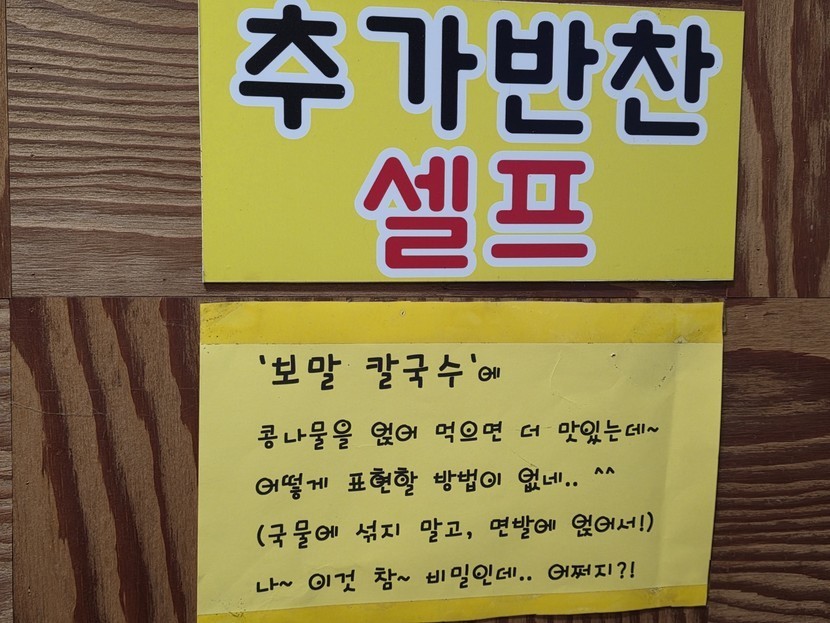 추가반찬
셀프
'보말 칼국수'에
콩나물을 얹어 먹으면 더 맛있는데~
어떻게 표현할 방법이 없네.. ^^
(국물에 섞지 말고, 면발에 얹어서!)
나~ 이것 참~ 비밀인데.. 어쩌지?!